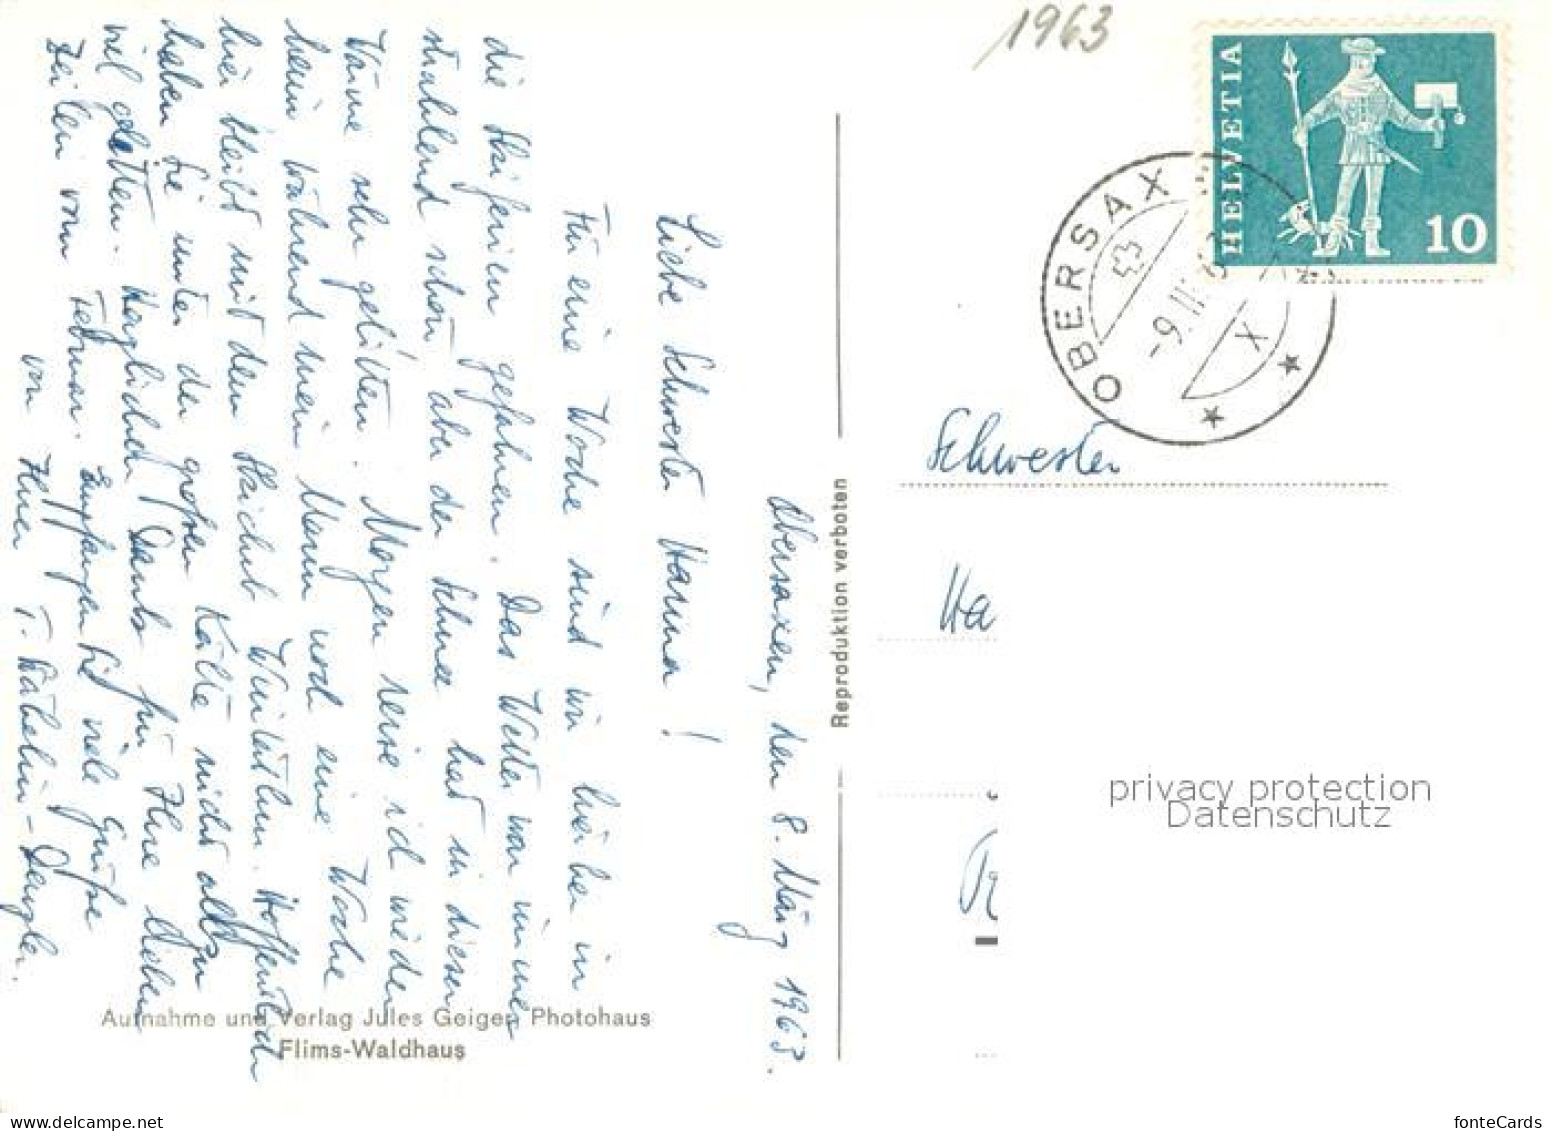 Obersaxen, den 8. März 1963.
Liebe Schwester Hanna!
Für eine Woche sind wir hierher in
die Skiferien gefahren. Das Wetter war immer
strahlend schön, aber der Schnee hat in dieser
Wärme sehr gelitten. Morgen reise ich wieder
heim während mein Mann noch eine Woche
hier bleibt mit dem Skiclub Winterthur. Hoffentlich
haben Sie unter der grossen Kälte nicht allzu
viel gelitten. Herzlichen Dank für Ihre lieben
Zeilen vom Februar. Empfangen Sie viele Grüsse
von Ihrer T.
Reproduktion verboten
Aufnahme und Verlag Jules Geiger, Photohaus
Flims-Waldhaus
1963
HELVETIA
10
OBERSAX
-9.III.
X
Schwester
Ha
privacy protection
Datenschutz
fonteCards